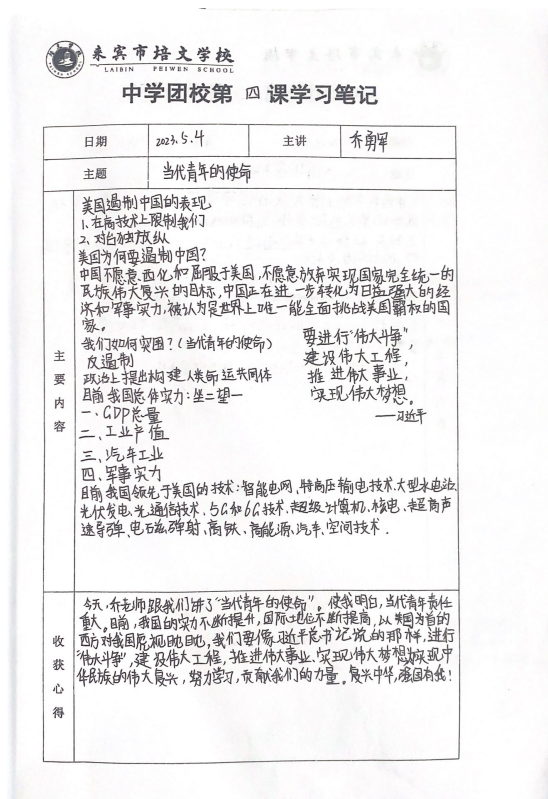 来宾市培文学校
LAIBIN PEIWEN SCHOOL
中学团校第 四 课学习笔记
日期 2023.5.4 主讲 乔勇军
主题 当代青年的使命
主要内容
美国遏制中国的表现
1、在高技术上限制我们
2、对台独放纵
美国为何要遏制中国?
中国不愿意西化和屈服于美国,不愿意放弃实现国家完全统一的
民族伟大复兴的目标,中国正在进一步转化为日益强大的经
济和军事实力,被认为是世界上唯一能全面挑战美国霸权的国
家。
我们如何突围?(当代青年的使命)
反遏制
政治上提出构建人类命运共同体
目前我国总体实力:坐二望一
一、GDP总量
二、工业产值
三、汽车工业
四、军事实力
要进行“伟大斗争”,
建设伟大工程,
推进伟大事业,
实现伟大梦想。
——习近平
目前我国领先于美国的技术:智能电网、特高压输电技术、大型水电站、
光伏发电、光通信技术、5G和6G技术、超级计算机、核电、超高声
速导弹、电石磁弹射、高铁、高能源、汽车、空间技术.
收获心得
今天,乔老师跟我们讲了“当代青年的使命”。使我明白,当代青年责任
重大。目前,我国的实力不断提升,国际地位不断提高,以美国为首的
西方对我国虎视眈眈,我们要像习近平总书记说的那样,进行
“伟大斗争”,建设伟大工程,推进伟大事业、实现伟大梦想,为实现中
华民族的伟大复兴,努力学习,贡献我们的力量。复兴中华,强国有我!